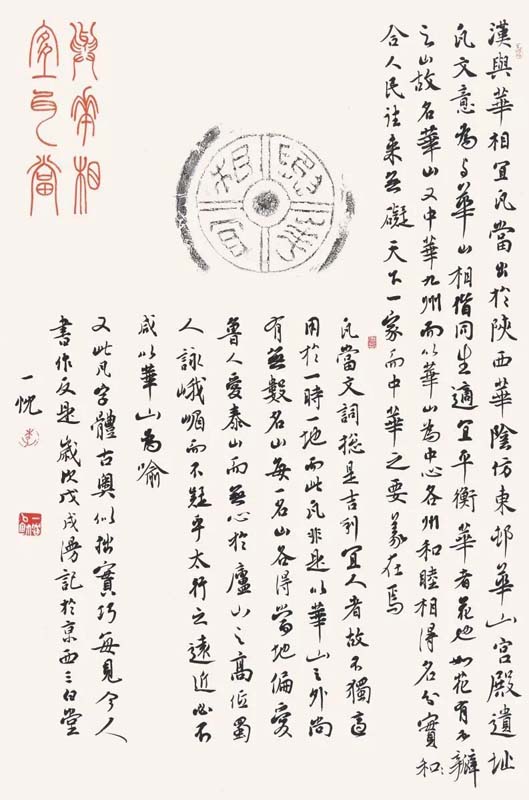 與華相
宜瓦當
與華相宜
漢與華相宜瓦當出於陝西華陰仿東邨華山宮殿遺址
瓦文意為与華山相偕同生適宜平衡華者花也如花有瓣
之山故名華山又中華九州而以華山為中心各州和睦相得名分實和
合人民往来無礙天下一家而中華之要義在焉
瓦當文詞總是吉利宜人者故不獨
用於一時一地而此瓦非是以華山之外尚
有無數名山每一名山各得當地偏愛
魯人愛泰山而無心於廬山之高低蜀
人詠峨嵋而不疑乎太行之遠近必不
咸以華山為喻
又此瓦字體古奧似拙實巧每見今人
書作反是歲次戊戌漫記於京西三白堂
一忱